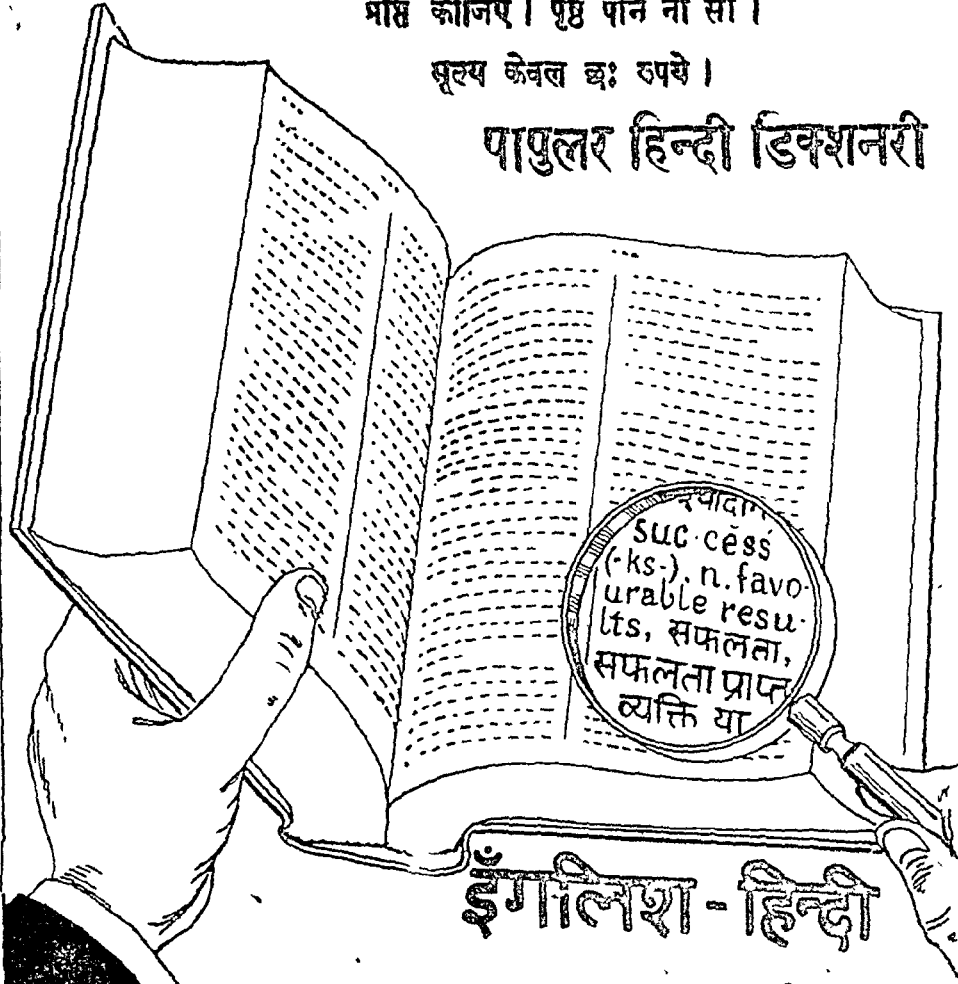 प्राप्त कीजिए। पृष्ठ पौने नौ सौ।
मूल्य केवल छः रुपये।
पापुलर हिन्दी डिक्शनरी
suc·cess
(-ks-), n. favo-
urable resu-
lts, सफलता,
सफलता प्राप्त
व्यक्ति या
इँगलिश - हिन्दी